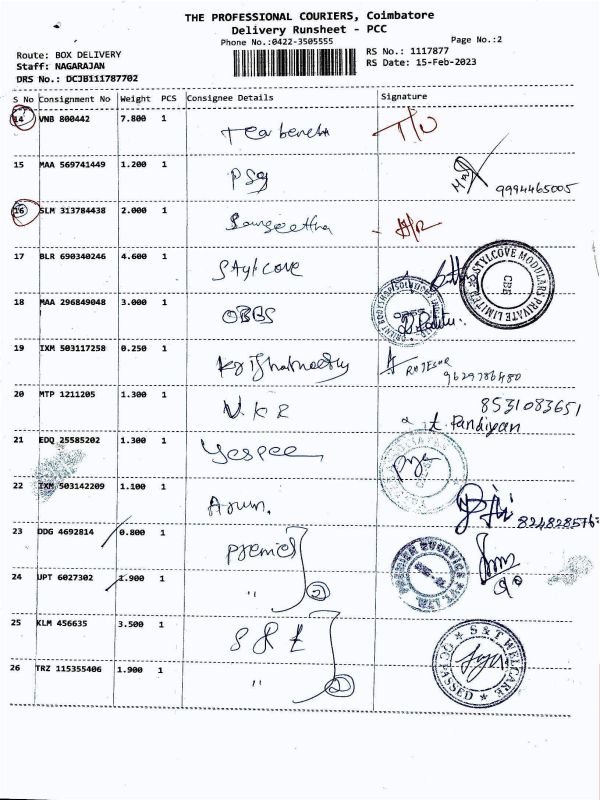 THE PROFESSIONAL COURIERS, Coimbatore
Delivery Runsheet - PCC
Phone No.:0422-3505555
Page No.:2
Route: BOX DELIVERY
RS No.: 1117877
Staff: NAGARAJAN
RS Date: 15-Feb-2023
DRS No.: DCJB111787702
S No Consignment No Weight PCS Consignee Details Signature
14 VNB 800442 7.800 1
15 MAA 569741449 1.200 1 PSG 9994465005
16 SLM 313784438 2.000 1 Sangeetha
17 BLR 690340246 4.600 1 Stylcove
STYLCOVE MODULAR PRIVATE LIMITED CBE
18 MAA 296849048 3.000 1 OBBS
19 IXM 503117258 0.250 1 RAJESH 9629786480
20 MTP 1211205 1.300 1 V.K.E 8531083651
t. Pandiyan
21 EDQ 25585202 1.300 1 Yespee
22 IXM 503142209 1.100 1 Arun.
23 DDG 4692814 0.800 1 Premier
PREMIER EVOLVICS PVT. LTD.
24 UPT 6027302 1.900 1 " 2
25 KLM 456635 3.500 1 S & T
S & T WELCARE PASSED
26 TRZ 115355406 1.900 1 " 2